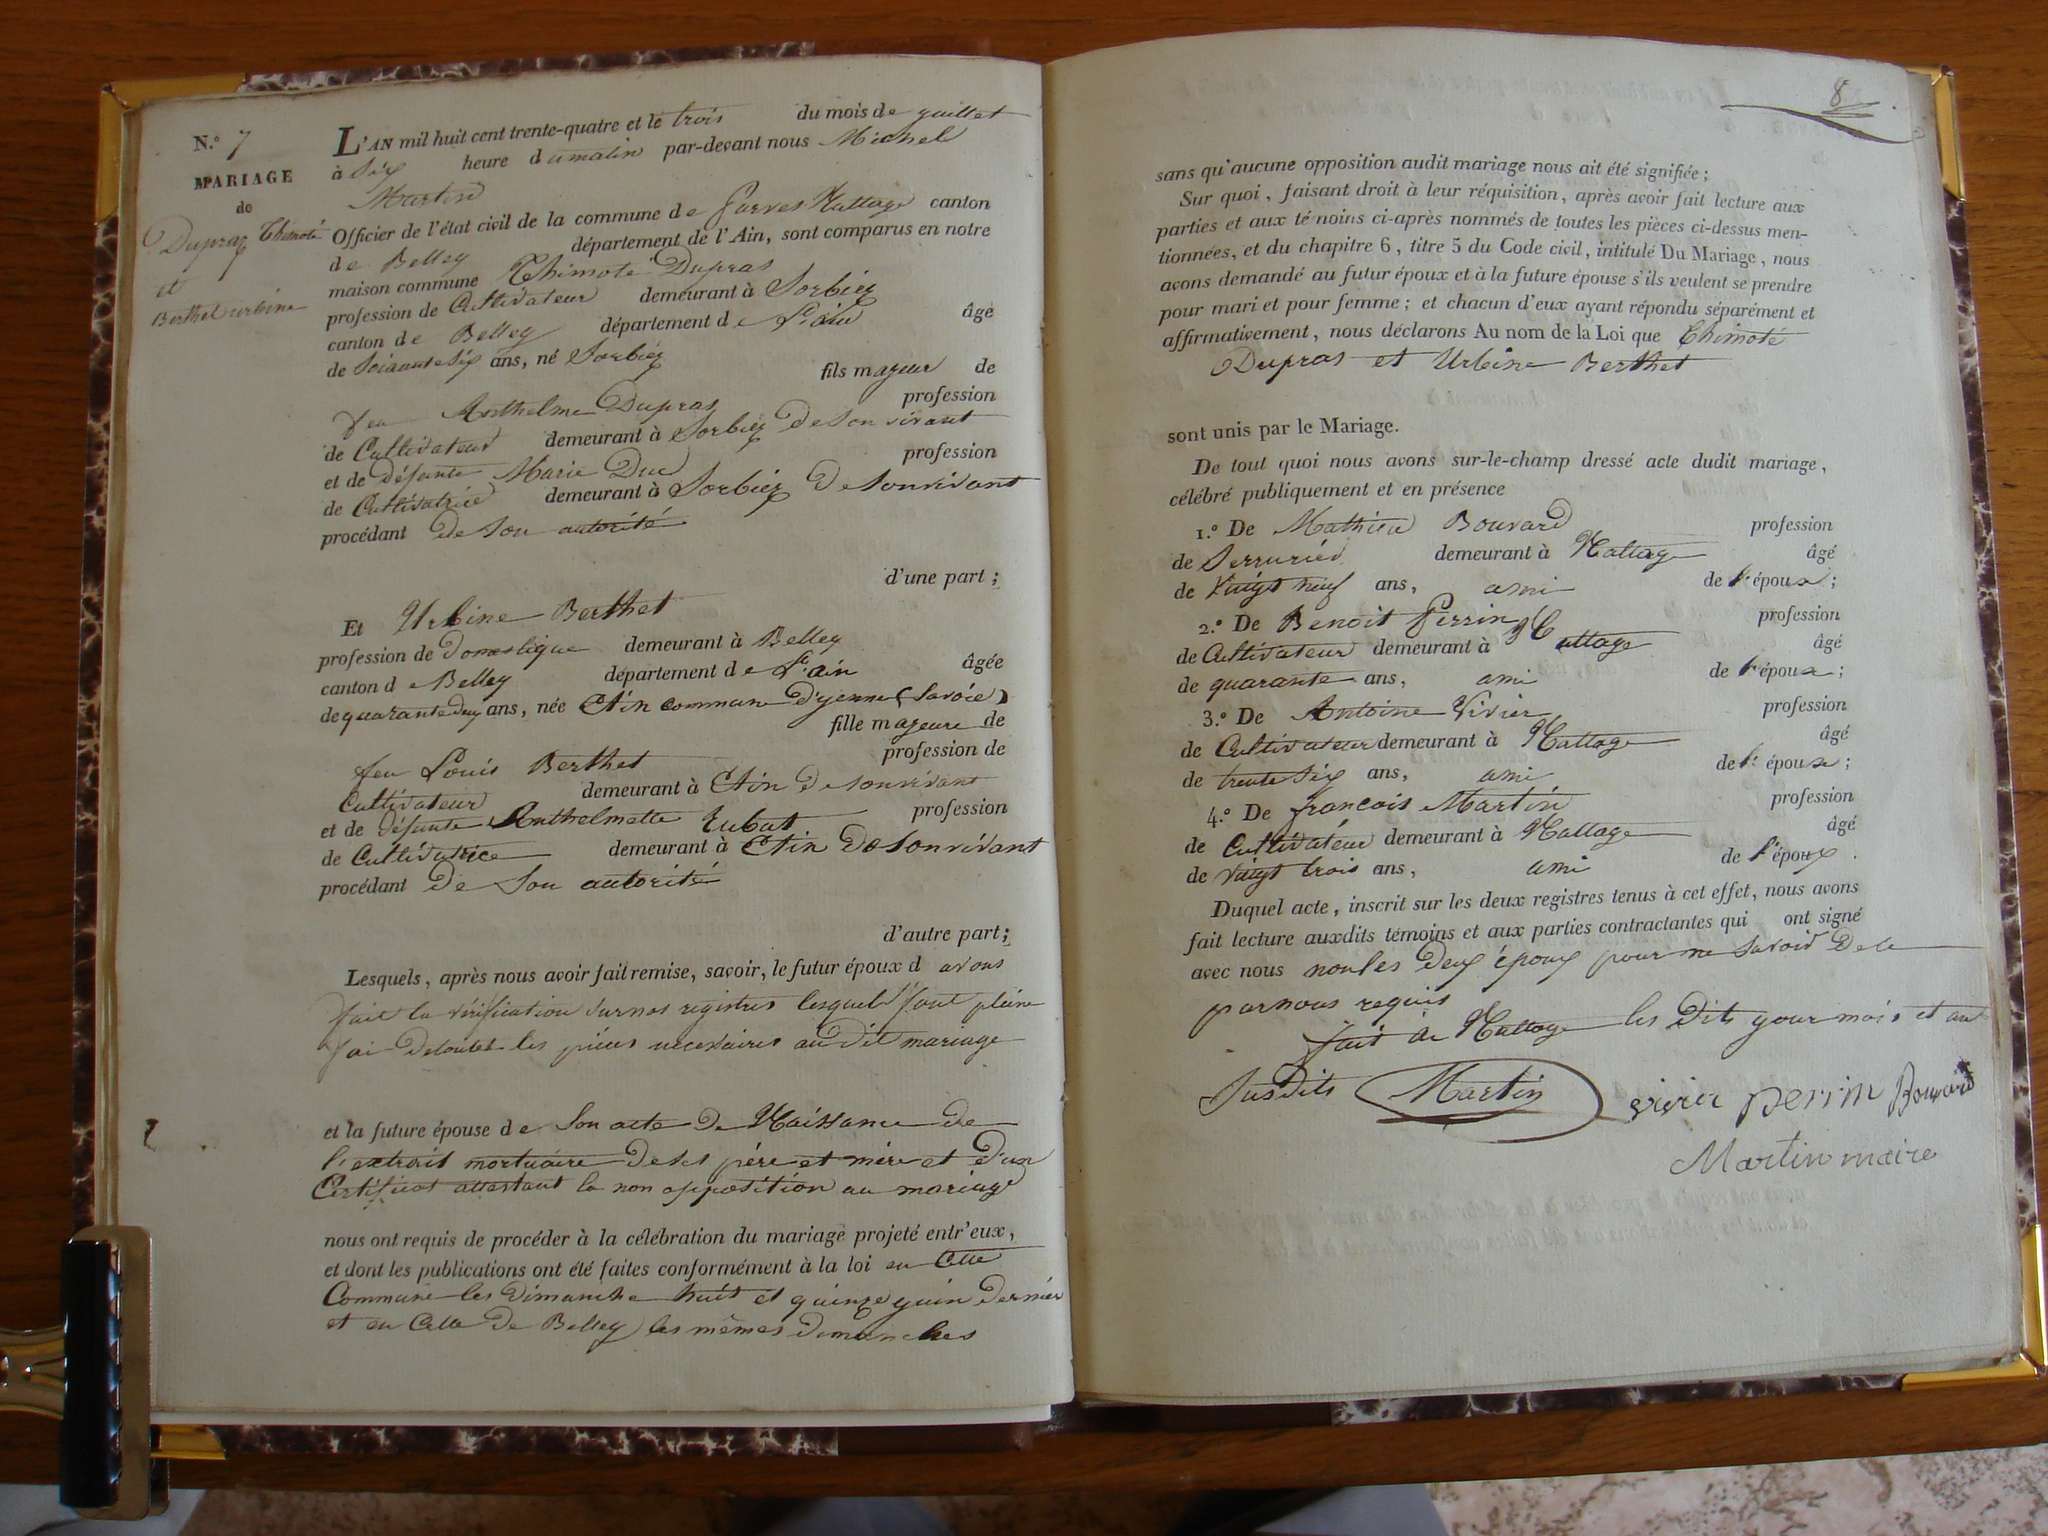 N.º 7
MARIAGE
de
Dupraz Thimoté
et
Berthet urbine
L'AN mil huit cent trente-quatre et le trois du mois de guillet
à Six heure du matin par-devant nous Michel
Martin
Officier de l'état civil de la commune de Parves Nattage canton
de Belley département de l'Ain, sont comparus en notre
maison commune Thimoté Dupras
profession de Cultivateur demeurant à Sorbiez
canton de Belley département de L'ain âgé
de Soixante Six ans, né Sorbiez
fils mageur de
feu Anthelme Dupras profession
de Cultivateur demeurant à Sorbiez De Son vivant
et de défunte Marie Duc profession
de Cultivatrice demeurant à Sorbiez De Son vivant
procédant de Son autorité
d'une part ;
Et Urbine Berthet
profession de Domestique demeurant à Belley
canton de Belley département de L'ain âgée
de quarante deux ans, née Etin commune D'yenne (Savoie)
fille mageure de
feu Louis Berthet profession de
Cultivateur demeurant à Etin De son vivant
et de défunte Anthelmette Rubat profession
de Cultivatrice demeurant à Etin De Son vivant
procédant De Son autorité
d'autre part ;
Lesquels, après nous avoir fait remise, savoir, le futur époux d avons
fait la vérification Sur nos registres lesquels font pleine
foi De toutes les pièces necessaires au Dit mariage
et la future épouse de Son acte De Naissance de
l'extrait mortuaire De Ses père et mère et D'un
Certificat attestant la non opposition au mariage
nous ont requis de procéder à la célébration du mariage projeté entr'eux,
et dont les publications ont été faites conformément à la loi en Cette
Commune les Dimanche huit et quinze guin Dernier
et en Celle De Belley les mêmes Dimanches
8
sans qu'aucune opposition audit mariage nous ait été signifiée ;
Sur quoi, faisant droit à leur réquisition, après avoir fait lecture aux
parties et aux témoins ci-après nommés de toutes les pièces ci-dessus men-
tionnées, et du chapitre 6, titre 5 du Code civil, intitulé Du Mariage, nous
avons demandé au futur époux et à la future épouse s'ils veulent se prendre
pour mari et pour femme ; et chacun d'eux ayant répondu séparément et
affirmativement, nous déclarons Au nom de la Loi que Thimoté
Dupras et Urbine Berthet
sont unis par le Mariage.
De tout quoi nous avons sur-le-champ dressé acte dudit mariage,
célébré publiquement et en présence
1.º De Mathieu Bouvard profession
de Serrurier demeurant à Nattage âgé
de Vingt neuf ans, ami de l'époux ;
2.º De Benoit Perrin profession
de Cultivateur demeurant à Nattage âgé
de quarante ans, ami de l'époux ;
3.º De Antoine Vivier profession
de Cultivateur demeurant à Nattage âgé
de trente Six ans, ami de l' époux ;
4.º De francois Martin profession
de Cultivateur demeurant à Nattage âgé
de Vingt trois ans, ami de l'époux .
Duquel acte, inscrit sur les deux registres tenus à cet effet, nous avons
fait lecture auxdits témoins et aux parties contractantes qui ont signé
avec nous non les Deux époux pour ne Savoir De ce
par nous requis
fait à Nattage les Dits gour mois et an
Susdits Martin vivier perrin Bouvard
Martin maire